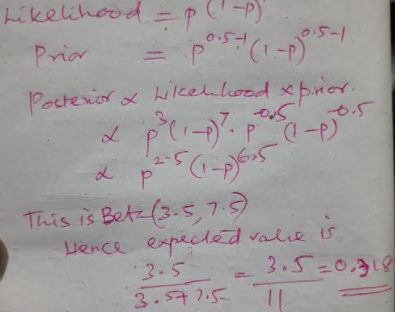 Likelihood = p (1-p)
Prior = p^0.5-1 (1-p)^0.5-1
Posterior ∝ Likelihood x prior.
∝ p^3 (1-p)^7 . p^-0.5 (1-p)^-0.5
∝ p^2.5 (1-p)^6.5
This is Beta (3.5, 7.5)
Hence expected value is
3.5 / 3.5+7.5 = 3.5 / 11 = 0.318